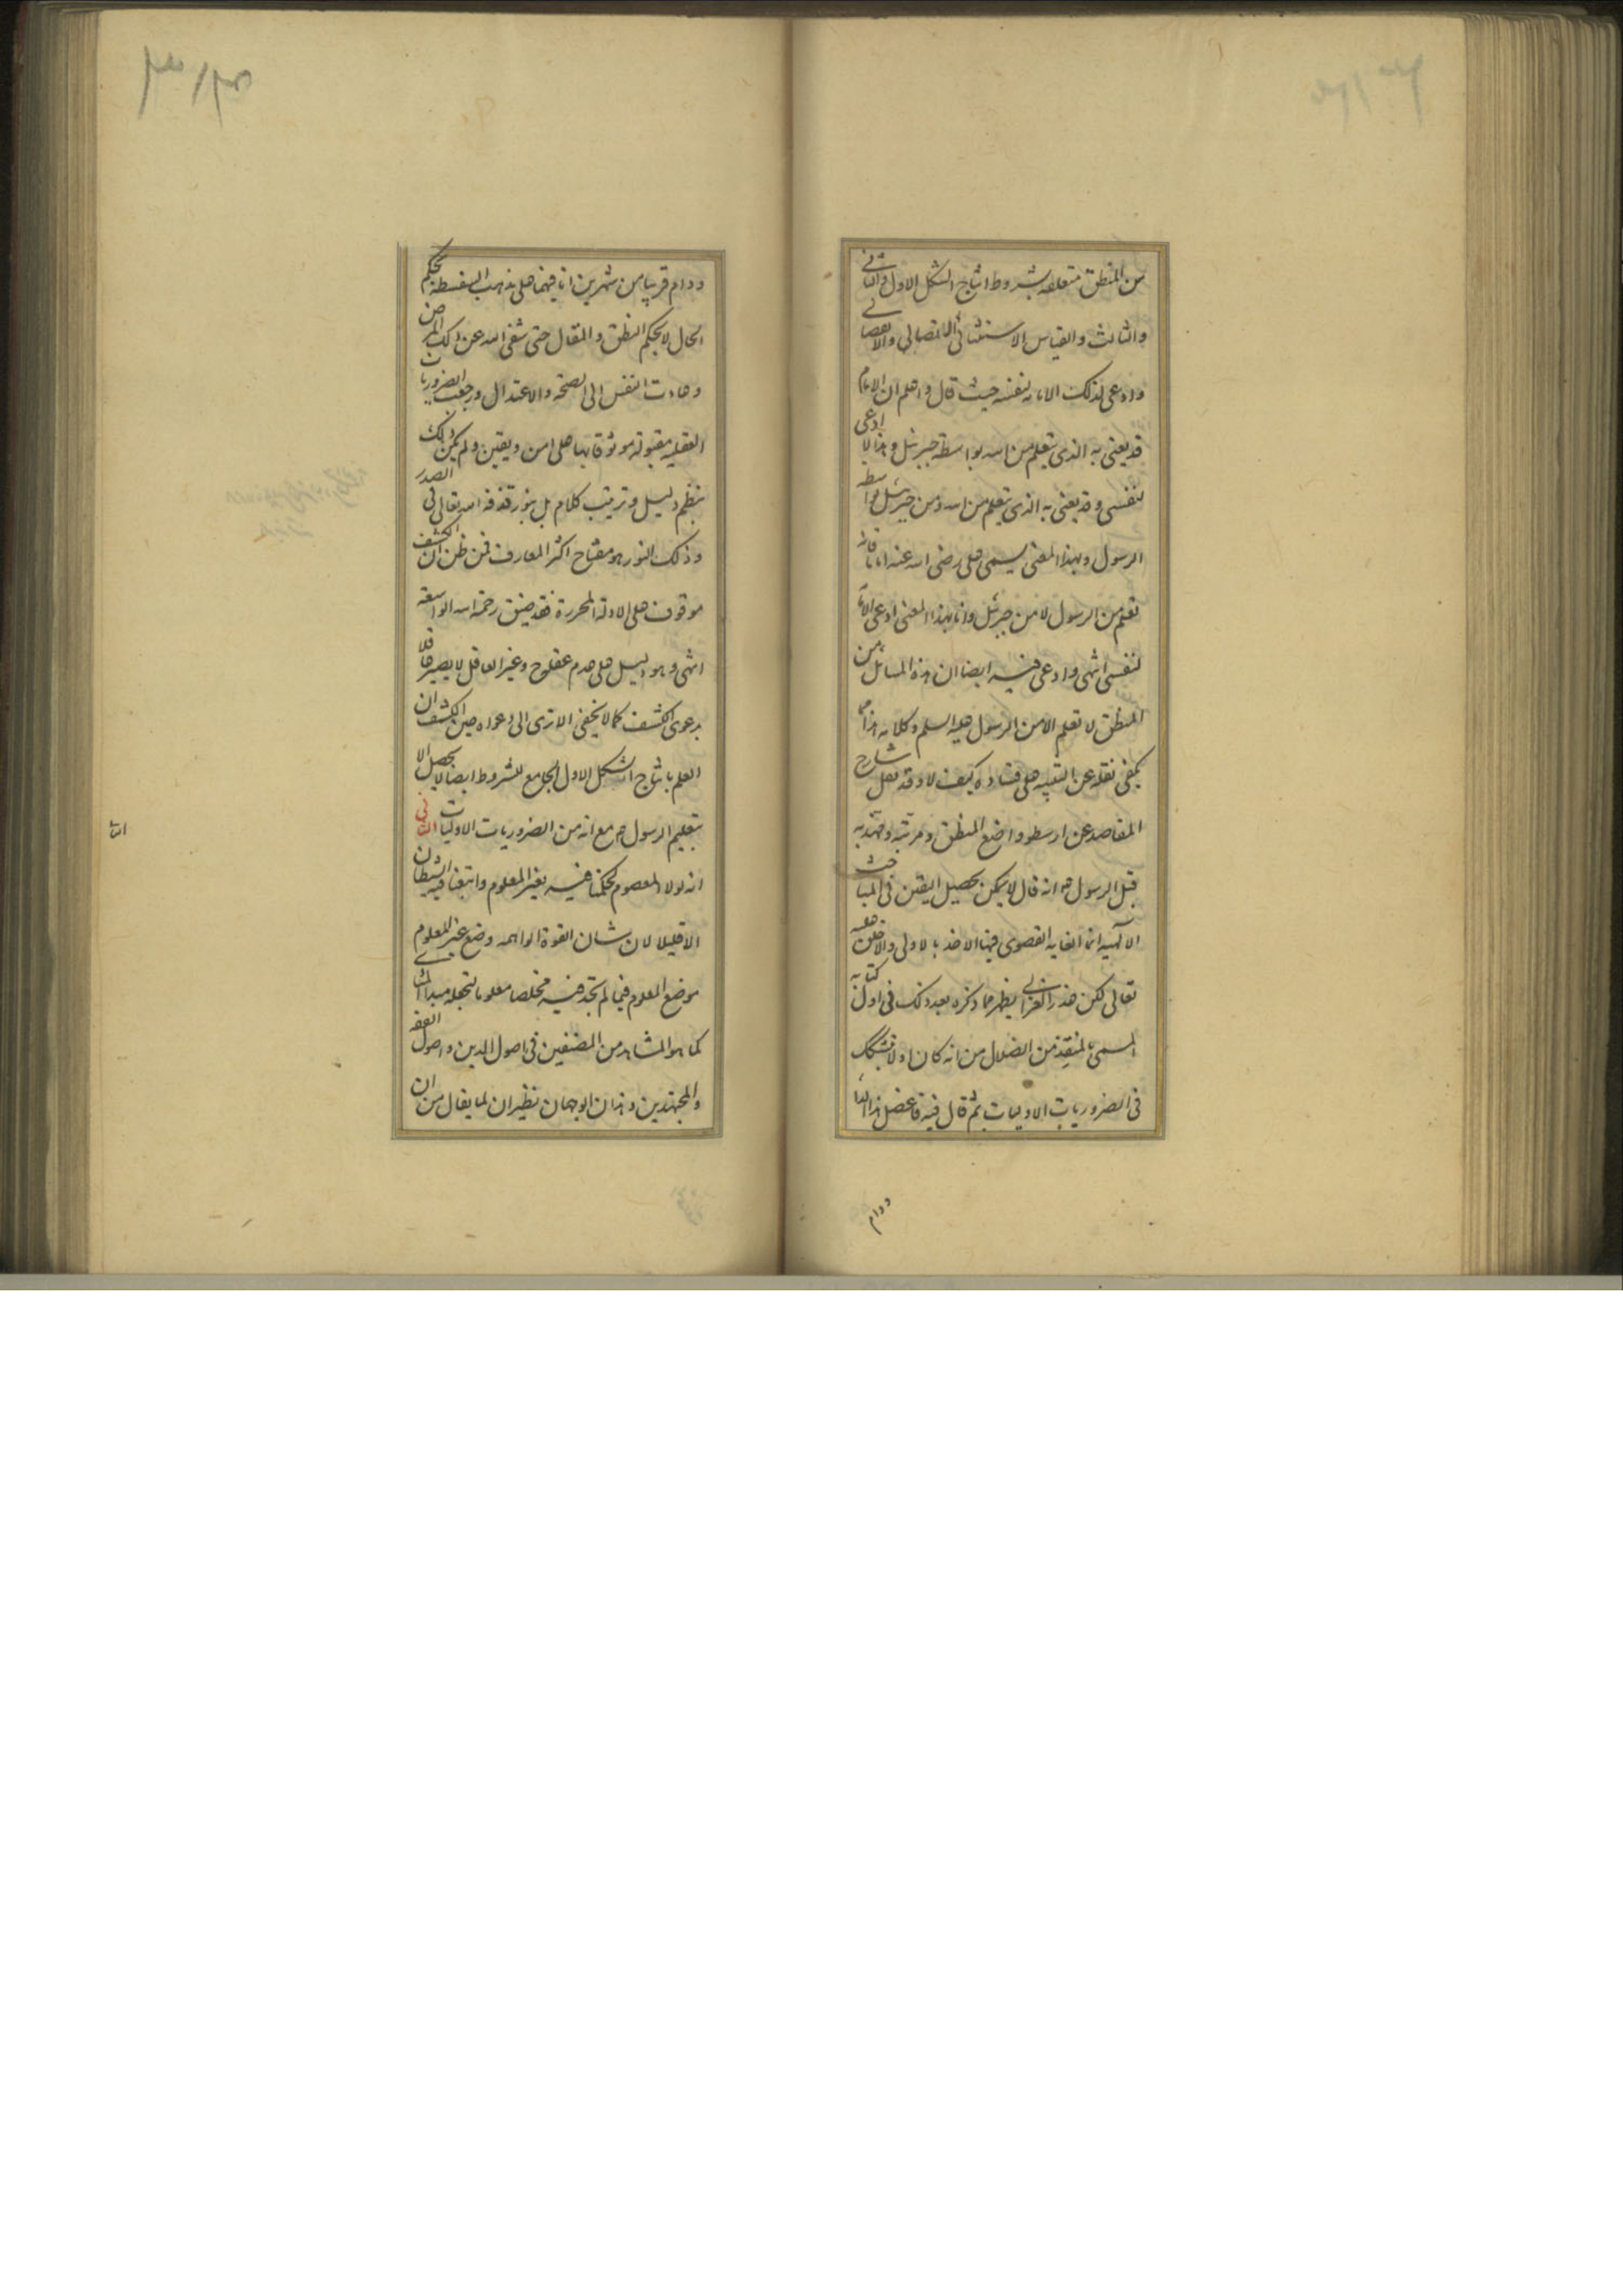 من المنطق متعلقه بشروط انتاج الشكل الاول والثاني
والثالث والقياس الاستثنائي الاتصالي والانفصالي
وادعى لذلك الامامه لنفسه حيث قال واعلم ان الامام
قد يعنى به الذى يتعلم من الله بواسطة جبرئيل وهذا لا ادعى
لنفسى وقد يعنى به الذى يتعلم من الله ومن جبرئيل بواسطه
الرسول وبهذا المعنى يسمى على رضى الله عنه اماما فانه
تعلم من الرسول لا من جبرئيل وانا بهذا المعنى ادعى الامامة
لنفسى انتهى وادعى فيه ايضا ان هذه المسائل من
المنطق لا تعلم الا من الرسول عليه السلم وكلامه هذا مما
يكفى نقله عن التنبيه على فساده كيف لا وقد نقل شارح
المقاصد عن ارسطو واضع المنطق ومرتبه ومهذبه
قبل الرسول ص انه قال لا يمكن تحصيل اليقين فى المباحث
الآلهيه انما الغايه القصوى فيها الاخذ بالاولى والاخلق
تعالى لكن عذر الغزالي يظهر مما ذكره بعد ذلك فى اول كتابه
المسمى بالمنقذ من الضلال من انه كان اولا تشكك
فى الضروريات الاوليات ثم قال فيه فاعضل هذا الداء
ودام
ودام قريبا من شهرين انا فيهما على مذهب السفسطه بحكم
الحال لا بحكم النطق والمقال حتى شفى الله عن ذلك المرض
وعادت النفس الى الصحة والاعتدال ورجعت الضروريات
العقليه مقبولة موثوقا بها على امن ويقين ولم يكن ذلك
بنظم دليل وترتيب كلام بل بنور قذفه الله تعالى فى الصدر
وذلك النور هو مفتاح اكثر المعارف فمن ظن ان الكشف
موقوف على الادلة المحررة فقد ضيق رحمة الله الواسعة
انتهى وهو دليل على عدم عقله ح وغير العاقل لا يصير عاقلا
بدعوى الكشف كما لا يخفى الا ترى الى دعواه حين الكشف ان
العلم بانتاج الشكل الاول الجامع للشروط ايضا لا يحصل الا
بتعليم الرسول ص مع انه من الضروريات الاوليات الثاني
انه لولا المعصوم لحكمنا فيه بغير المعلوم واتبعنا فيه الشيطان
الا قليلا لان شان القوة الواهمه وضع غير المعلوم
موضع المعلوم فيما لم تجد فيه مخلصا معلوما لتجعله مبدا
كما هو المشاهد من المصنفين فى اصول الدين واصول الفقه
والمجتهدين وهذان الوجهان نظيران لما يقال من ان